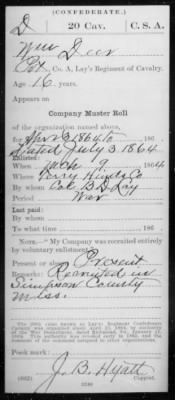 (CONFEDERATE.)
D 20 Cav. C. S. A.
Wm Deer
Pvt, Co. A, Lay's Regiment of Cavalry.
Age 16 years.
Appears on
Company Muster Roll
of the organization named above,
for 1864 to 186 .
dated July 3 1864
Enlisted:
When Mch 9 1864
Where Perry Hinds Co
By whom Col B D Lay
Period War
Last paid:
By whom
To what time 186 .
NOTE.—My Company was recruited entirely by voluntary enlistment.
Present or absent Present
Remarks: Recruited in
Simpson County
Miss.
Book mark:
J. B. Hyatt
(662) Copyist.